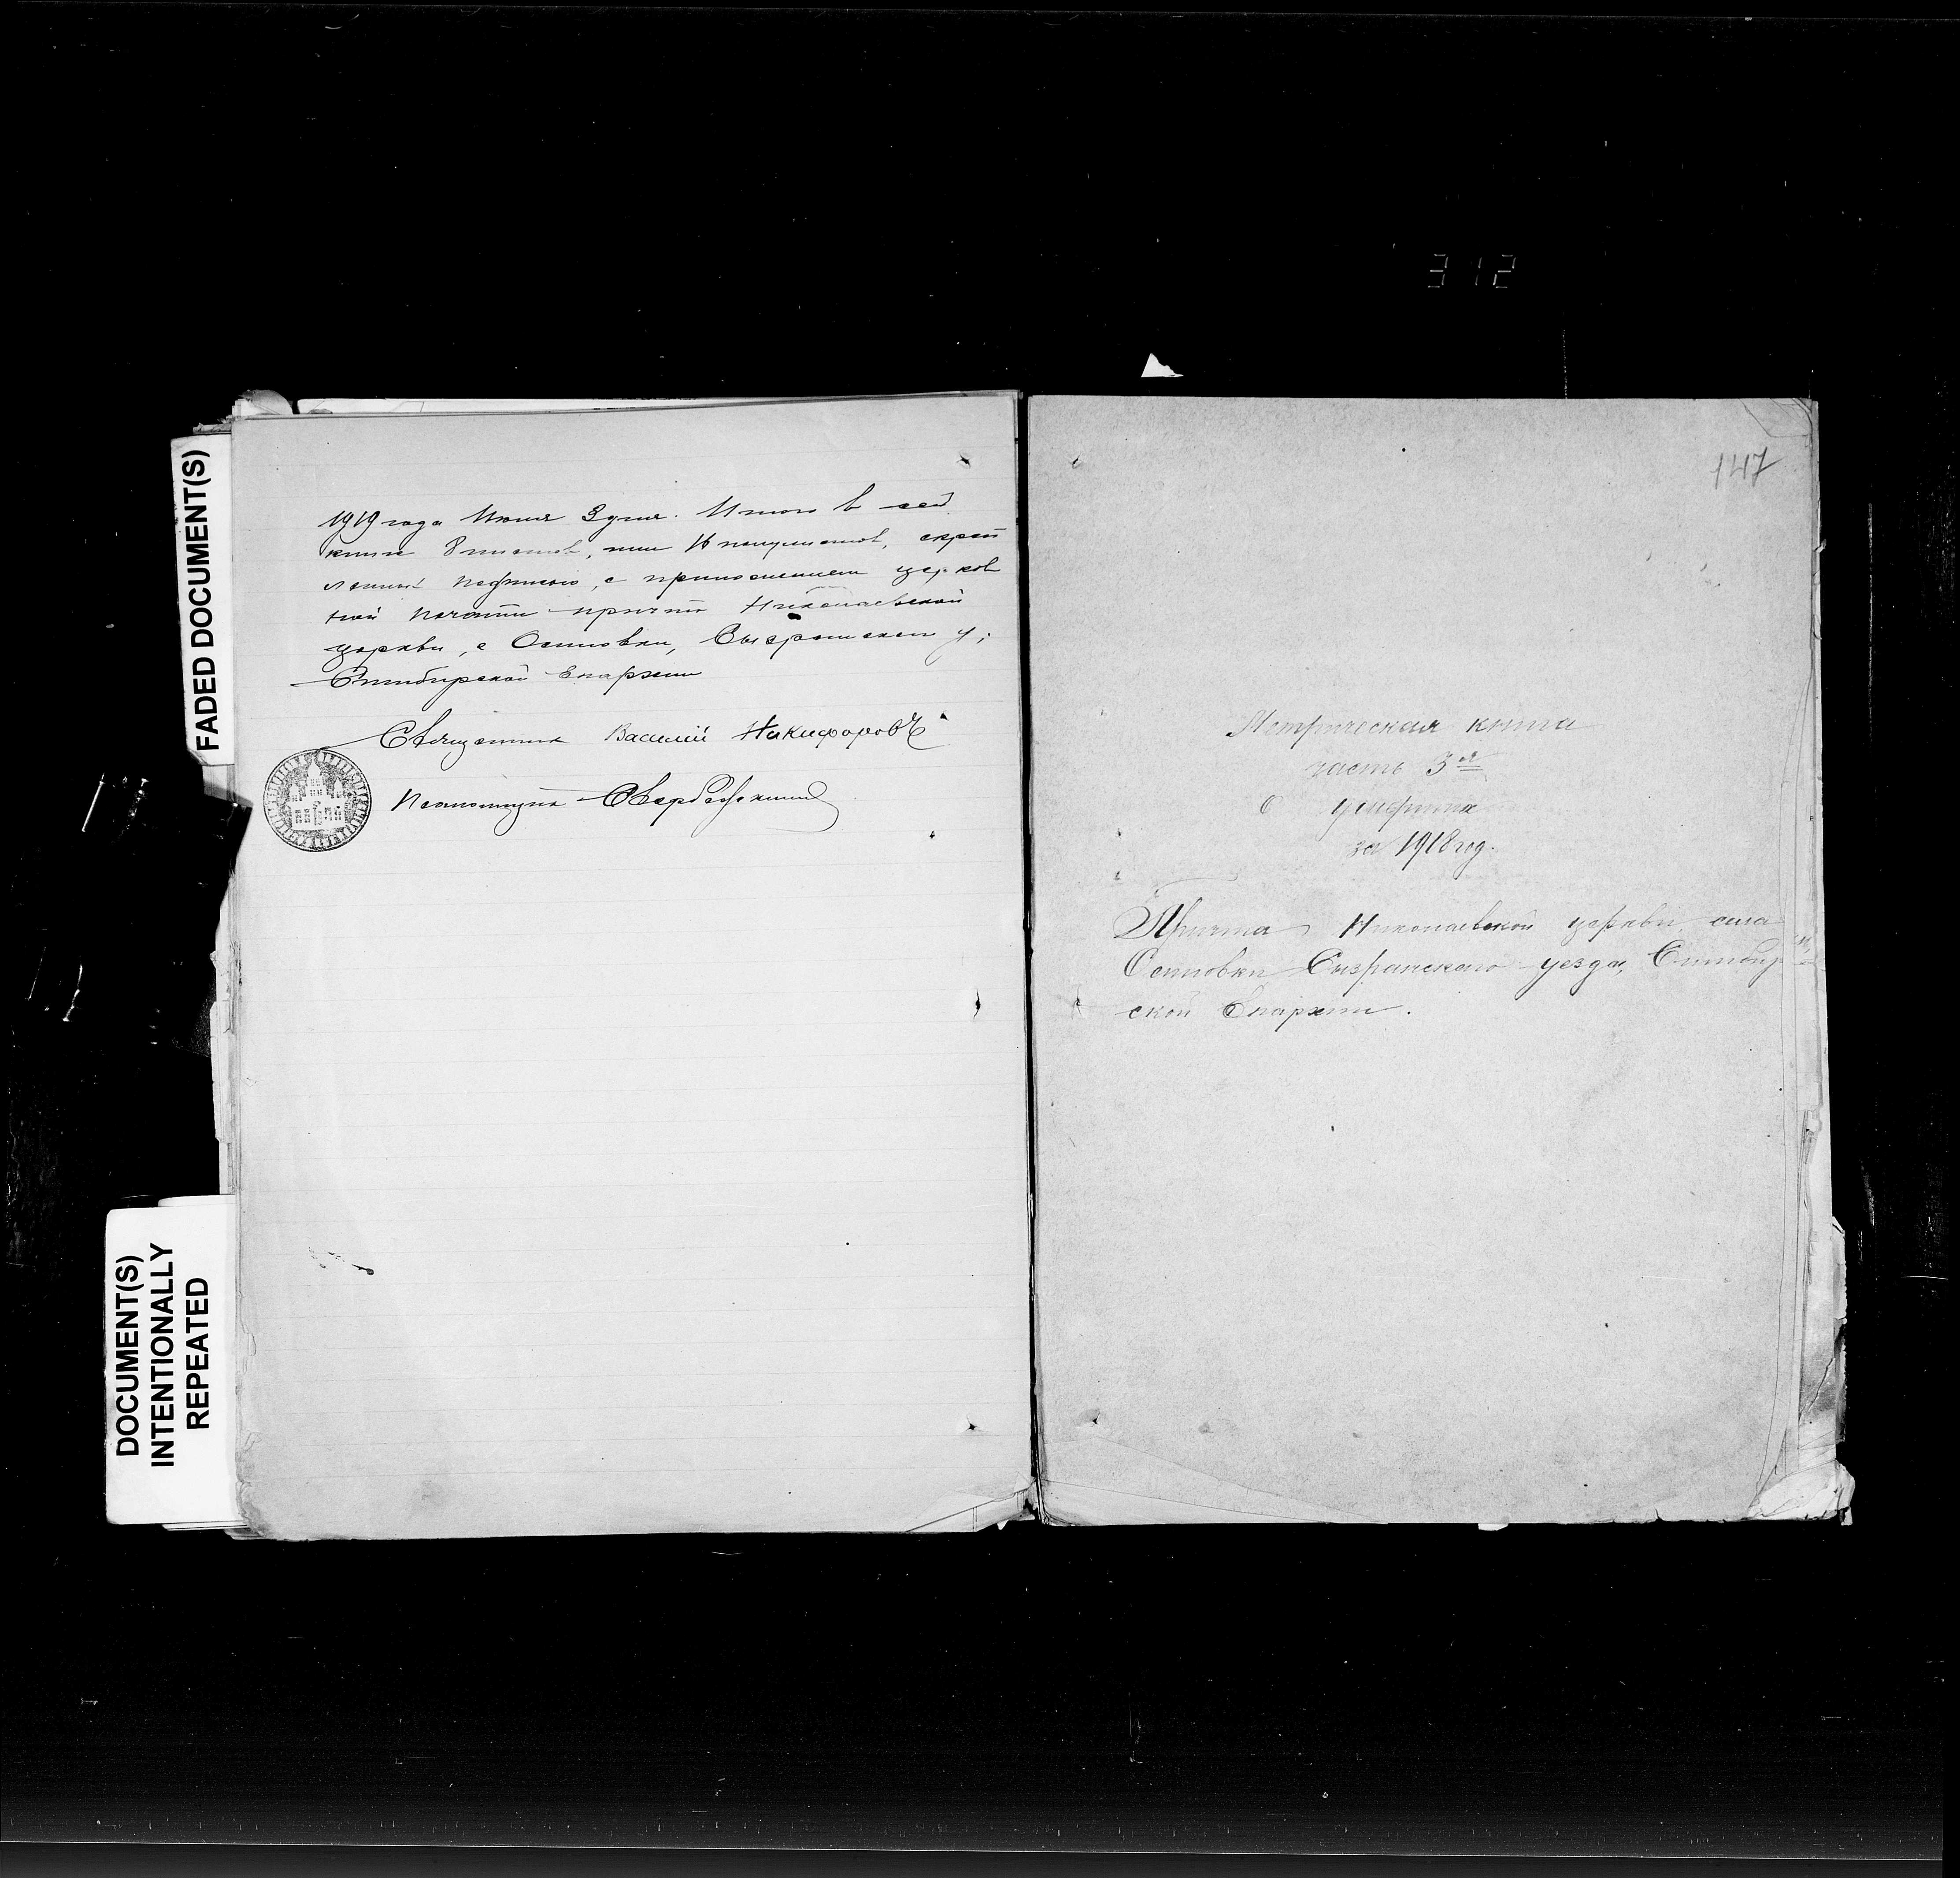 312
FADED DOCUMENT(S)
1919 года Июня 3 дня. Итого в сей
книге 8 листов, или 16 полулистов, скреп
ленных подписью, с приложением церков
ной печати причта Николаевской
церкви, с Осиновки, Сызранского у;
Симбирской Епархии
Священник Василий Никифоровъ
Псаломщик
DOCUMENT(S)
INTENTIONALLY
REPEATED
147
Метрическая книга
часть 3я
О умерших
за 1918 год.
Причта Николаевской церкви села
Осиновки Сызранского уезда, Симбир
ской Епархии.